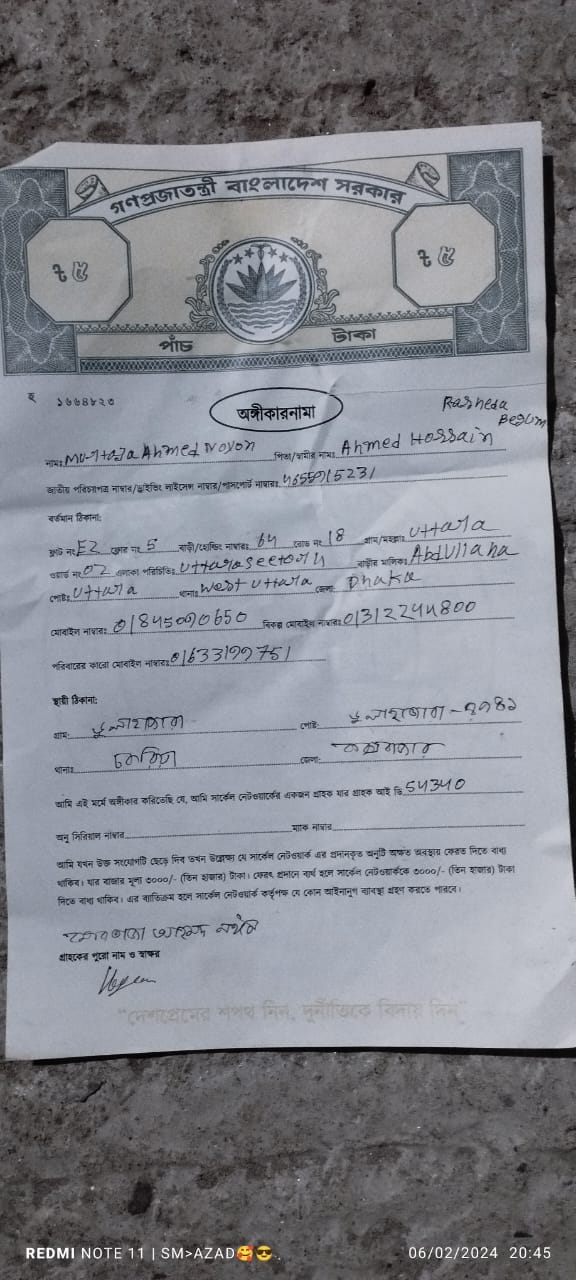 গণপ্রজাতন্ত্রী বাংলাদেশ সরকার
৳ ৫ ৳ ৫
পাঁচ টাকা
১৬৬৪৮২৩
অঙ্গীকারনামা
Rasheda Begum
নামঃ Ahmed Noyon পিতা/স্বামীর নামঃ Ahmed Hossain
জাতীয় পরিচয়পত্র নাম্বার/ড্রাইভিং লাইসেন্স নাম্বার/পাসপোর্ট নাম্বারঃ
বর্তমান ঠিকানা:
ফ্ল্যাট নংঃ E2 ফ্লোর নংঃ 5 বাড়ী/হোল্ডিং নাম্বারঃ 64 রোড নংঃ 18 গ্রাম/মহল্লাঃ Uttara
ওয়ার্ড নংঃ 02 এলাকা পরিচিতিঃ বাড়ীর মালিকঃ
পোষ্টঃ Uttara থানাঃ West Uttara জেলাঃ Dhaka
মোবাইল নাম্বারঃ বিকল্প মোবাইল নাম্বারঃ 01312244800
পরিবারের কারো মোবাইল নাম্বারঃ
স্থায়ী ঠিকানা:
গ্রাম: পোষ্ট:
থানাঃ জেলা:
আমি এই মর্মে অঙ্গীকার করিতেছি যে, আমি সার্কেল নেটওয়ার্কের একজন গ্রাহক যার গ্রাহক আই ডি 54340
অনু সিরিয়াল নাম্বার ম্যাক নাম্বার
আমি যখন উক্ত সংযোগটি ছেড়ে দিব তখন উল্লেখ্য যে সার্কেল নেটওয়ার্ক এর প্রদানকৃত অনুটি অক্ষত অবস্থায় ফেরত দিতে বাধ্য
থাকিব। যার বাজার মূল্য ৩০০০/- (তিন হাজার) টাকা। ফেরৎ প্রদানে ব্যর্থ হলে সার্কেল নেটওয়ার্ককে ৩০০০/- (তিন হাজার) টাকা
দিতে বাধ্য থাকিব। এর ব্যতিক্রম হলে সার্কেল নেটওয়ার্ক কর্তৃপক্ষ যে কোন আইনানুগ ব্যবস্থা গ্রহণ করতে পারবে।
গ্রাহকের পুরো নাম ও স্বাক্ষর
"দেশপ্রেমের শপথ নিন, দুর্নীতিকে বিদায় দিন"
REDMI NOTE 11 | SM>AZAD🥰😎 . 06/02/2024 20:45